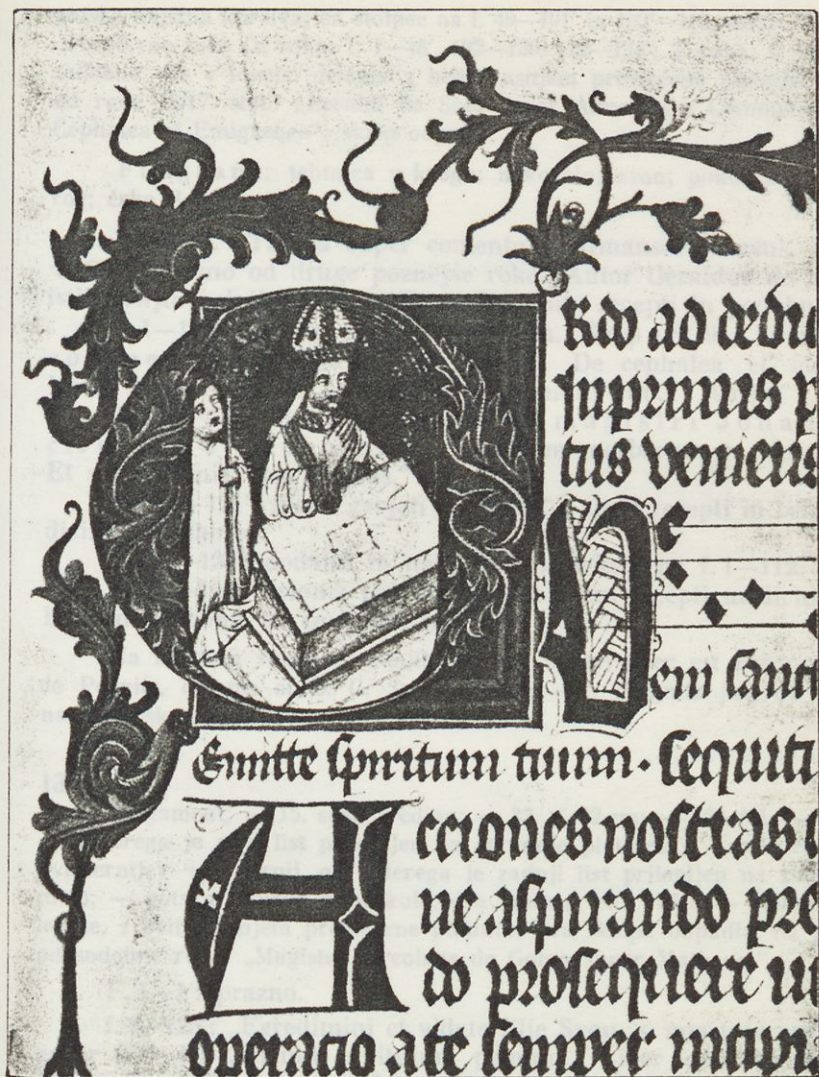 Ordo ad dedi
suprimis p
tus veniens
Veni sanct
Emitte spiritum tuum · Sequit
Acciones nostras
ne aspirando pre
do prosequere ut
operacio a te semper incipi